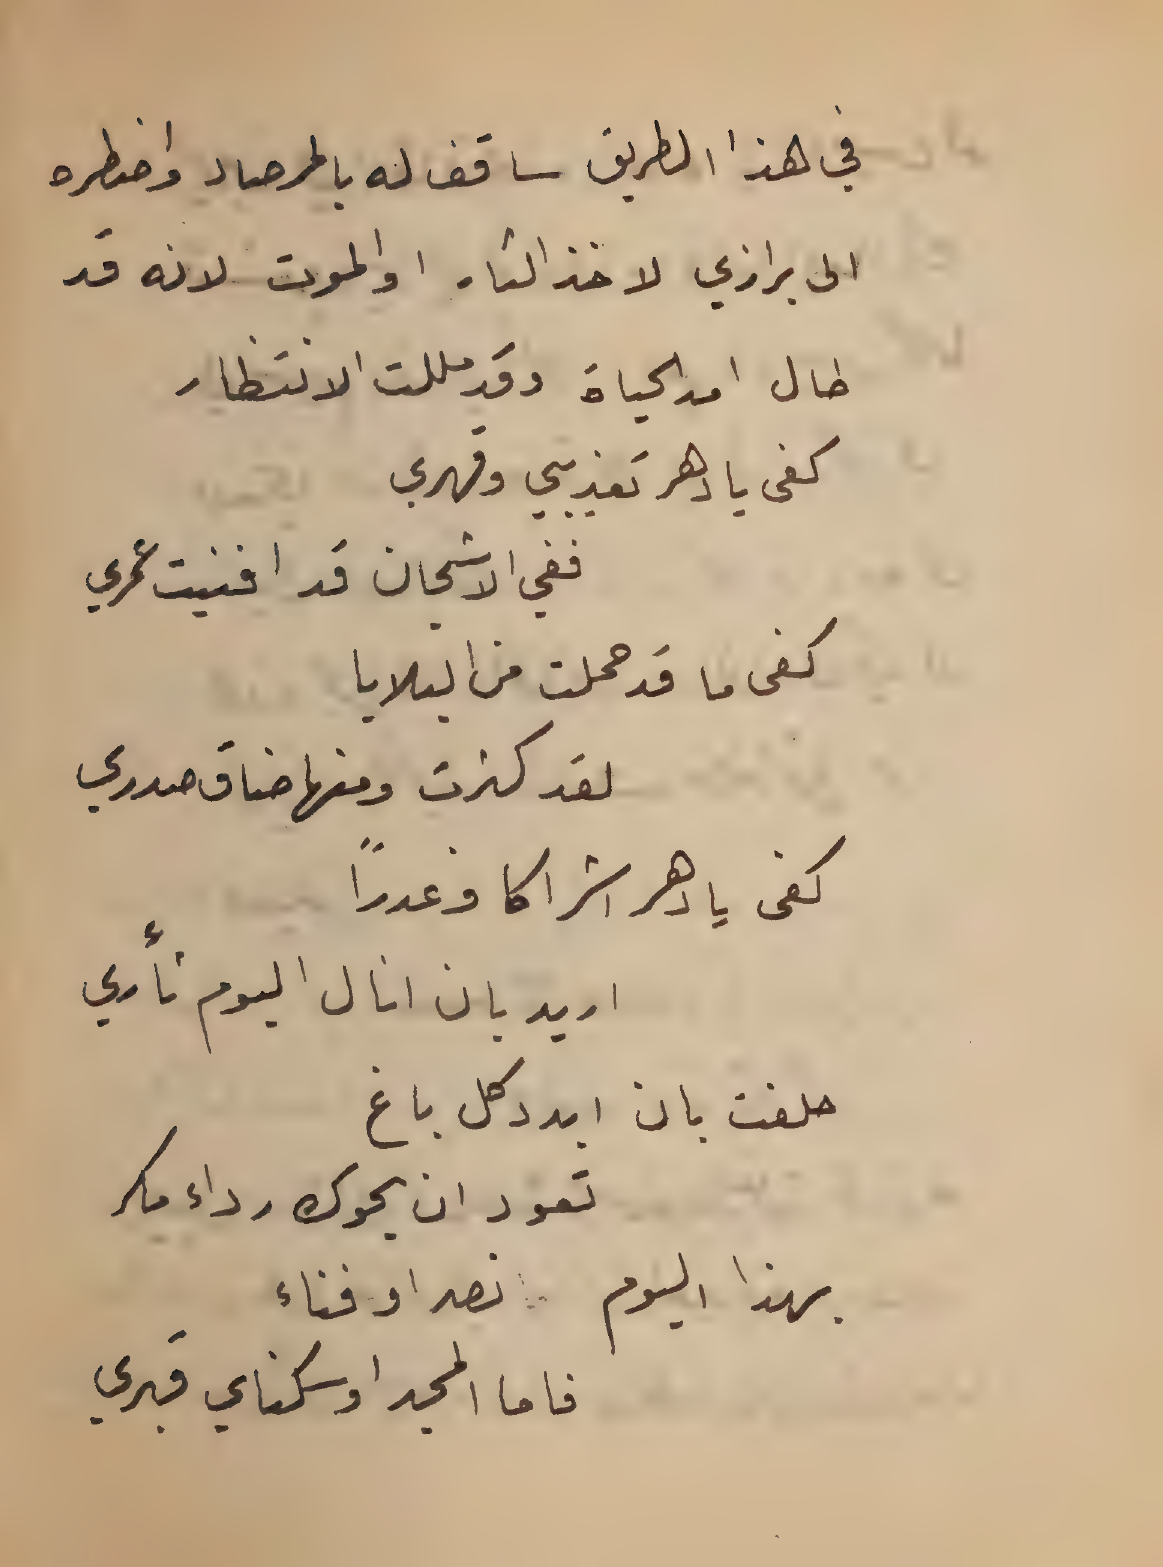 في هذا الطريق ساقف له بالمرصاد واضطره
الى برازي لاخذ الثار او الموت لانه قد
طال امد الحياة وقد مللت الانتظار
كفى يا دهر تعذيبي وقهري
ففي الاشجان قد افنيت عمري
كفى ما قد حملت من البلايا
لقد كثرت ومنها ضاق صدري
كفى يا دهر اشراكا وغدرًا
اريد بان انال اليوم ثأري
حلفت بان ابدد كل باغ
تعود ان يحوك رداء مكر
بهذا اليوم نصر او فناء
فاما المجد او سكناي قبري